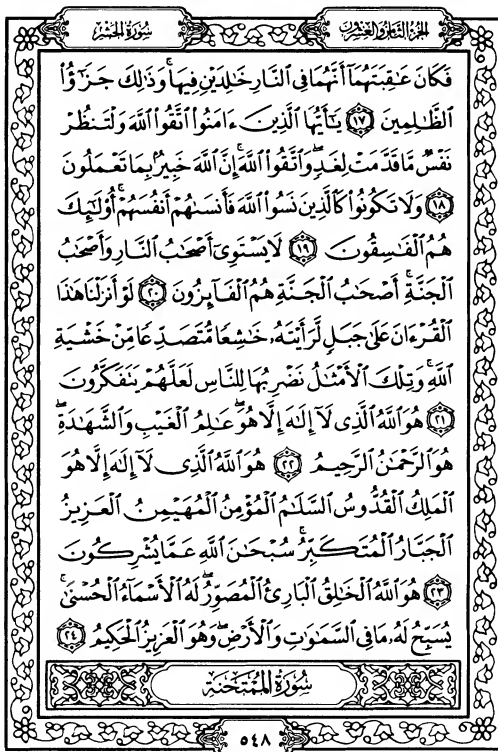 سُورَةُ الحَشْرِ
الجُزْءُ الثَّامِنُ وَالعِشْرُونَ
فَكَانَ عَٰقِبَتَهُمَآ أَنَّهُمَا فِى ٱلنَّارِ خَٰلِدَيْنِ فِيهَا ۚ وَذَٰلِكَ جَزَٰٓؤُا۟
ٱلظَّٰلِمِينَ ١٧ يَٰٓأَيُّهَا ٱلَّذِينَ ءَامَنُوا۟ ٱتَّقُوا۟ ٱللَّهَ وَلْتَنظُرْ
نَفْسٌ مَّا قَدَّمَتْ لِغَدٍ ۖ وَٱتَّقُوا۟ ٱللَّهَ ۚ إِنَّ ٱللَّهَ خَبِيرٌۢ بِمَا تَعْمَلُونَ
١٨ وَلَا تَكُونُوا۟ كَٱلَّذِينَ نَسُوا۟ ٱللَّهَ فَأَنسَىٰهُمْ أَنفُسَهُمْ ۚ أُو۟لَٰٓئِكَ
هُمُ ٱلْفَٰسِقُونَ ١٩ لَا يَسْتَوِىٓ أَصْحَٰبُ ٱلنَّارِ وَأَصْحَٰبُ
ٱلْجَنَّةِ ۚ أَصْحَٰبُ ٱلْجَنَّةِ هُمُ ٱلْفَآئِزُونَ ٢٠ لَوْ أَنزَلْنَا هَٰذَا
ٱلْقُرْءَانَ عَلَىٰ جَبَلٍ لَّرَأَيْتَهُۥ خَٰشِعًا مُّتَصَدِّعًا مِّنْ خَشْيَةِ
ٱللَّهِ ۚ وَتِلْكَ ٱلْأَمْثَٰلُ نَضْرِبُهَا لِلنَّاسِ لَعَلَّهُمْ يَتَفَكَّرُونَ
٢١ هُوَ ٱللَّهُ ٱلَّذِى لَآ إِلَٰهَ إِلَّا هُوَ ۖ عَٰلِمُ ٱلْغَيْبِ وَٱلشَّهَٰدَةِ ۖ
هُوَ ٱلرَّحْمَٰنُ ٱلرَّحِيمُ ٢٢ هُوَ ٱللَّهُ ٱلَّذِى لَآ إِلَٰهَ إِلَّا هُوَ
ٱلْمَلِكُ ٱلْقُدُّوسُ ٱلسَّلَٰمُ ٱلْمُؤْمِنُ ٱلْمُهَيْمِنُ ٱلْعَزِيزُ
ٱلْجَبَّارُ ٱلْمُتَكَبِّرُ ۚ سُبْحَٰنَ ٱللَّهِ عَمَّا يُشْرِكُونَ
٢٣ هُوَ ٱللَّهُ ٱلْخَٰلِقُ ٱلْبَارِئُ ٱلْمُصَوِّرُ ۖ لَهُ ٱلْأَسْمَآءُ ٱلْحُسْنَىٰ ۚ
يُسَبِّحُ لَهُۥ مَا فِى ٱلسَّمَٰوَٰتِ وَٱلْأَرْضِ ۖ وَهُوَ ٱلْعَزِيزُ ٱلْحَكِيمُ ٢٤
سُورَةُ المُمْتَحِنَةِ
٥٤٨